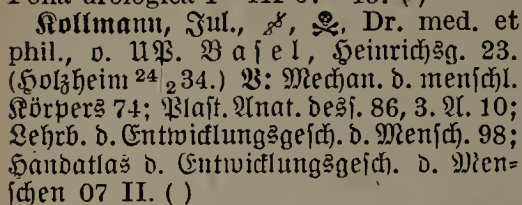 Kollmann, Jul., ☠, Dr. med. et
phil., o. UP. Basel, Heinrichsg. 23.
(Holzheim 24/2 34.) V: Mechan. d. menschl.
Körpers 74; Plast. Anat. dess. 86, 3. A. 10;
Lehrb. d. Entwicklungsgesch. d. Mensch. 98;
Handatlas d. Entwicklungsgesch. d. Men-
schen 07 II. ( )